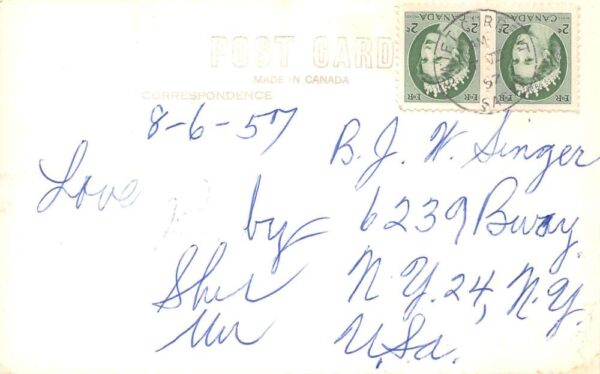 POST CARD
MADE IN CANADA
CORRESPONDENCE
CANADA
2¢ 2¢
E·R
CANADA
2¢ 2¢
E·R
57
8-6-57
Love
by
B. J. W. Singer
6239 Bway.
N.Y. 24, N.Y.
U,Sa.